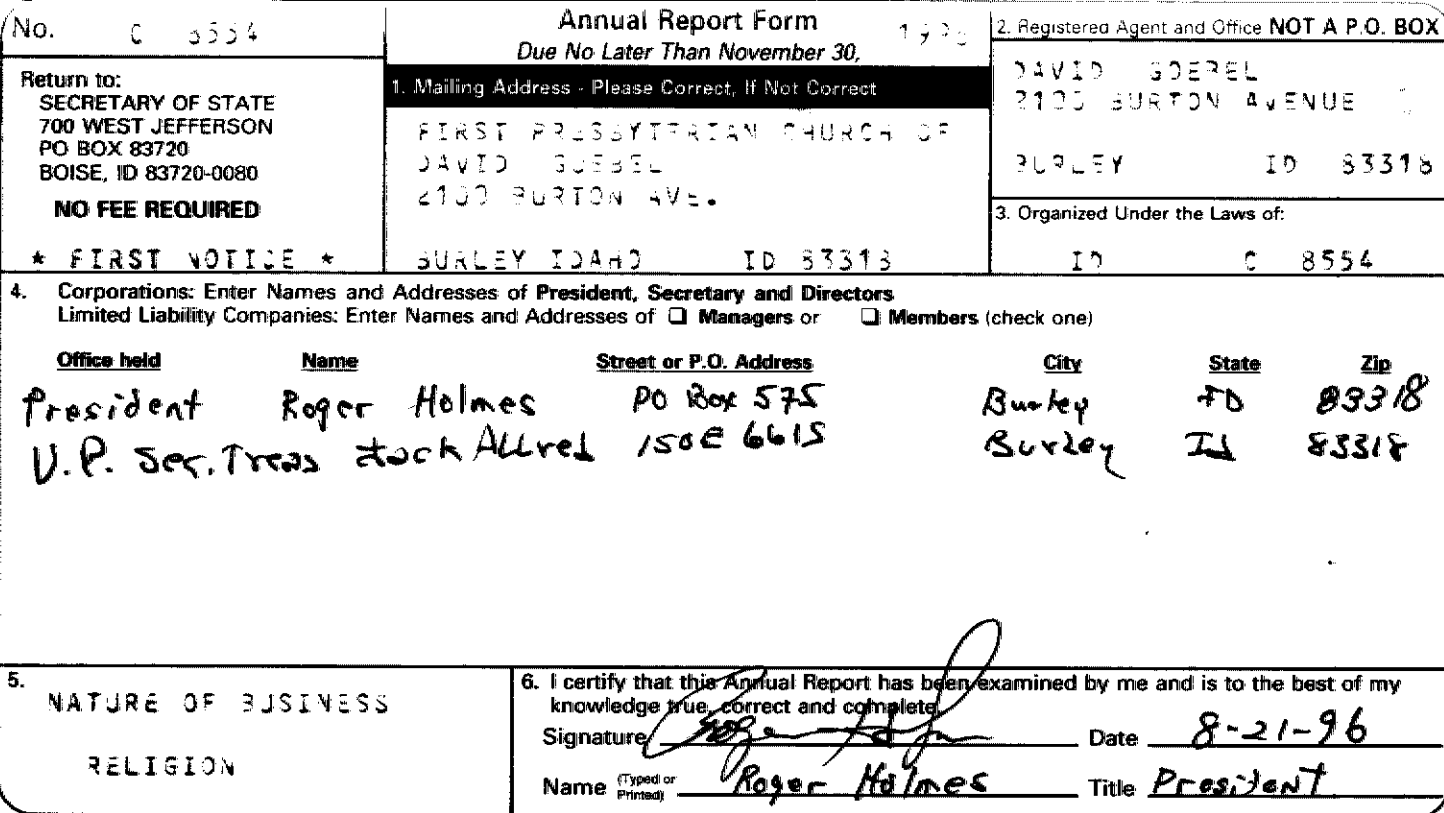 No. C 8554
Annual Report Form
Due No Later Than November 30,
Return to:
SECRETARY OF STATE
700 WEST JEFFERSON
PO BOX 83720
BOISE, ID 83720-0080
NO FEE REQUIRED
* FIRST NOTICE *
1. Mailing Address - Please Correct, If Not Correct
FIRST PRESBYTERIAN CHURCH OF
DAVID GOEBEL
2100 BURTON AVE.
BURLEY IDAHO ID 83318
2. Registered Agent and Office NOT A P.O. BOX
DAVID GOEBEL
2100 BURTON AVENUE
BURLEY ID 83318
3. Organized Under the Laws of:
ID C 8554
4. Corporations: Enter Names and Addresses of President, Secretary and Directors
Limited Liability Companies: Enter Names and Addresses of ❑ Managers or ❑ Members (check one)
Office held Name Street or P.O. Address City State Zip
President Roger Holmes PO Box 575 Burley ID 83318
V.P. Sec. Treas Allred 150E 661S Burley Id 83318
5. NATURE OF BUSINESS
RELIGION
6. I certify that this Annual Report has been examined by me and is to the best of my
knowledge true, correct and complete
Signature Date 8-21-96
Name (Typed or Printed) Roger Holmes Title President